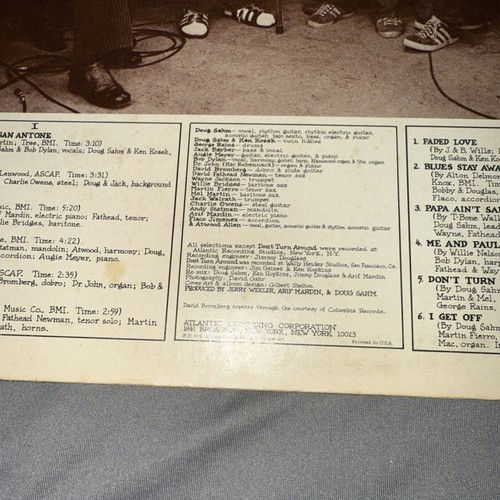 I
SAN ANTONE
Martin; Tree, BMI. Time: 3:10)
Sahm & Bob Dylan, vocals; Doug Sahm & Ken Kosek,
Glenwood, ASCAP. Time: 3:31)
Charlie Owens, steel; Doug & Jack, background
Music, BMI. Time: 5:20)
Mardin, electric piano; Fathead, tenor;
Bridges, baritone.
BMI. Time: 4:22)
mandolin; Atwood, harmony; Doug,
accordion; Augie Meyer, piano.
ASCAP. Time: 2:35)
Bromberg, dobro; Dr. John, organ; Bob &
Music Co., BMI. Time: 2:59)
Fathead Newman, tenor solo; Martin
horns.
Doug Sahm—vocal, rhythm guitar, electric guitar,
acoustic guitar, bajo sexto, bass, organ, & piano
Doug Sahm & Ken Kosek—twin fiddles
George Rains—drums
Jack Barber—bass & vocal
Augie Meyer—guitar, electric guitar, & piano
Bob Dylan—vocal, harmony, guitar, harp, Hammond organ & the organ
Dr. John (Mac Rebennack)—organ & piano
David Bromberg—dobro & slide guitar
David Fathead Newman—tenor sax
Wayne Jackson—trumpet
Willie Bridges—baritone sax
Martin Fierro—tenor sax
Mel Martin—baritone sax
Jack Walrath—trumpet
Charlie Owens—steel guitar
Andy Statman—mandolin
Arif Mardin—electric piano
Flaco Jimenez—accordion
& Atwood Allen—vocal, guitar, acoustic guitar & rhythm acoustic guitar
All selections except Don't Turn Around were recorded at
Atlantic Recording Studios, New York, N.Y.
Recording engineer: Jimmy Douglass
Don't Turn Around was recorded at Wally Heider Studios, San Francisco, Ca.
Recording engineers: Jim Gaines & Ken Hopkins
Re-mix: Doug Sahm, Ken Hopkins, Jimmy Douglass & Arif Mardin.
Photography: David Gahr
Cover Art & album design: Gilbert Shelton
PRODUCED BY JERRY WEXLER, ARIF MARDIN, & DOUG SAHM.
David Bromberg appears through the courtesy of Columbia Records.
ATLANTIC RECORDING CORPORATION
1841 BROADWAY, NEW YORK, NEW YORK 10023
Printed in U.S.A.
1. FADED LOVE
(By J. & B. Wills;
Doug Sahm & Ken
2. BLUES STAY AWAY
(By Alton Delmore
Knox, BMI. Time
Bobby & Douglas,
Flaco, accordion
3. PAPA AIN'T SALTY
(By T-Bone
Doug Sahm, lead
Wayne, Fathead
4. ME AND PAUL
(By Willie Nelson
Bob Dylan, harp
Fathead & Way
5. DON'T TURN
(By Doug Sahm
Martin & Mel,
George Rains,
6. I GET OFF
(By Doug Sahm
Martin Fierro,
Mac, organ.